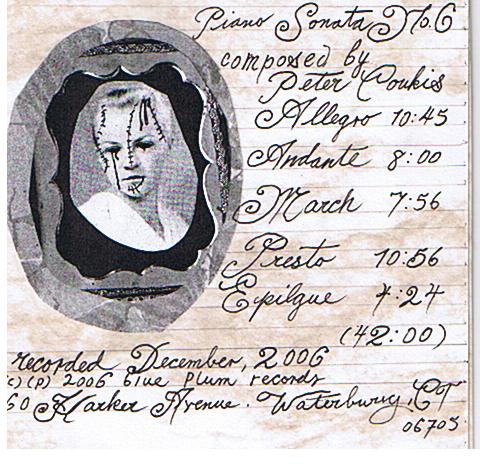 Piano Sonata No. 6
composed by
Peter Coukis
Allegro 10:45
Andante 8:00
March 7:56
Presto 10:56
Epilgue 4:24
(42:00)
recorded December, 2006
(c) (p) 2006 blue plum records
60 Harker Avenue. Waterbury, CT
06705